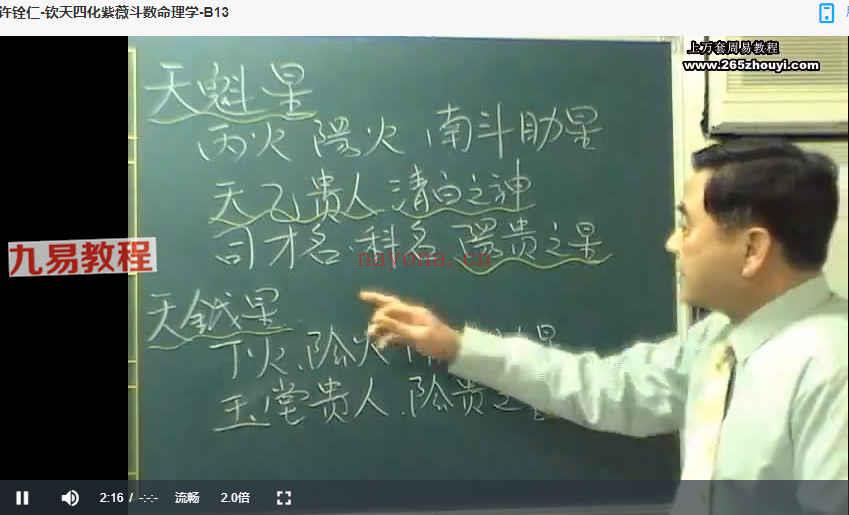 许铨仁-钦天四化紫薇斗数命理学-B13
上万套周易教程
www.265zhouyi.com
天魁星
丙火 陽火 南斗助星
天乙贵人 清白之神
司才名.科名 陽贵之星
九易教程
nayona.cn
天鉞星
丁火.陰火
玉堂贵人.陰贵之
2:16 / -:-:- 流畅 2.0倍